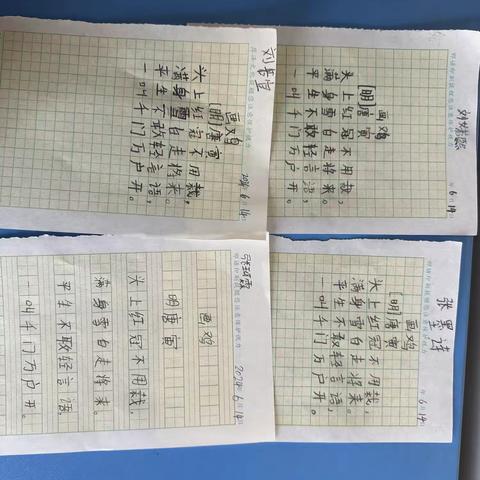 画鸡
[明]唐寅
头上红冠不用裁，
满身雪白走将来。
平生不敢轻言语，
一叫千门万户开。
6月14日
画鸡
[明]唐寅
头上红冠不用裁，
满身雪白走将来。
平生不敢轻言语，
一叫千门万户开。
年6月14日
画鸡
明唐寅
头上红冠不用裁，
满身雪白走将来。
平生不敢轻言语，
一叫千门万户开。
2024年6月14日
画鸡
[明]唐寅
头上红冠不用裁，
满身雪白走将来。
平生不敢轻言语，
一叫千门万户开。
年6月14日